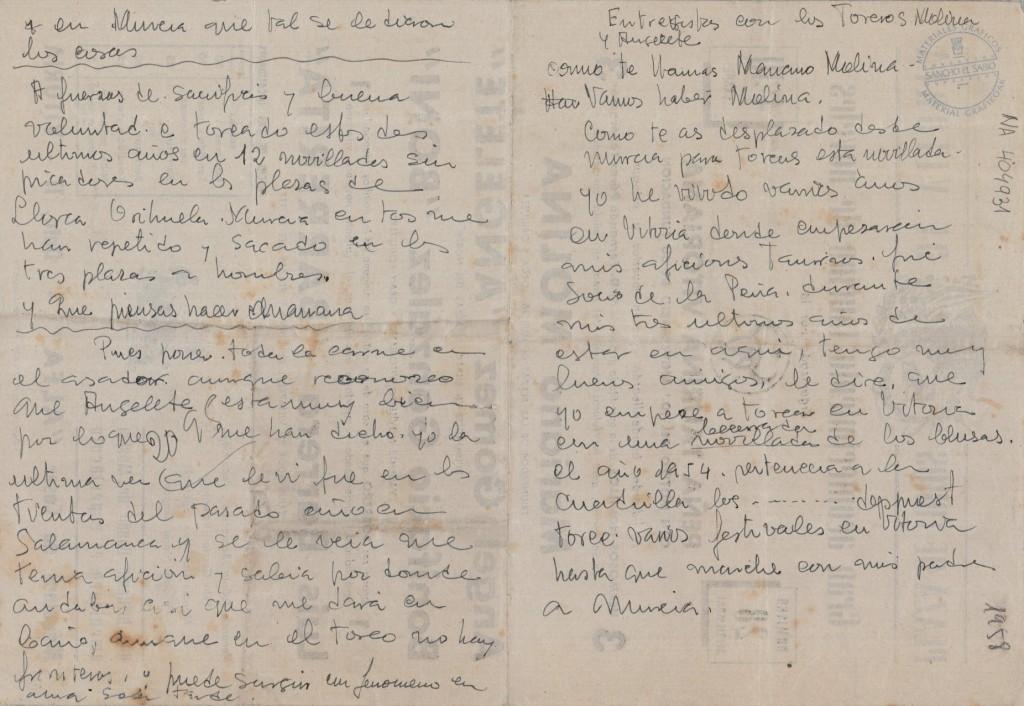 Entrevistas con los Toreros Molina
y Angelete
como te llamas Mariano Molina -
Vamos haber Molina.
Como te as desplazado desde
Murcia para Torear esta novillada -
yo he vivido varios años
en Vitoria donde empezaron
mis aficiones Taurinas. fui
Socio de la Peña. durante
mis tres ultimos años de
estar en aqui, tengo muy
buenos amigos, le dire, que
yo empeze a Torear en Vitoria
en una becerrada novillada de los blusas.
el año 1954. pertenecia a la
Cuadrilla los ---------
Toree varios festivales en Vitoria
hasta que marche con mis padre
a Murcia.
y en Murcia que tal se le dieron
las cosas
A fuerzas de Sacrificis y buena
voluntad. e toreado estos dos
ultimos años en 12 novilladas sin
picadores en las plazas de
Llorca Orihuela Murcia en tos me
han repetido y Sacado en las
tres plazas a hombros.
y Que piensas hacer Mañana
Pues poner. toda la carne en
el asador. aunque reconozco
que Angelete esta muy bien
por lo que me han dicho. yo la
ultima vez que le vi fue en las
Tientas del pasado año en
Salamanca y se le veia que
tenia aficion y sabia por donde
andaba, asi que me dará un
baño, aunque en el toreo no hay
fronteras, y puede Surgir un fenomeno en
MATERIALES GRÁFICOS
SANCHO EL SABIO
MATERIAL GRAFIKOAK
NA 404931
1958
MOLINA
3